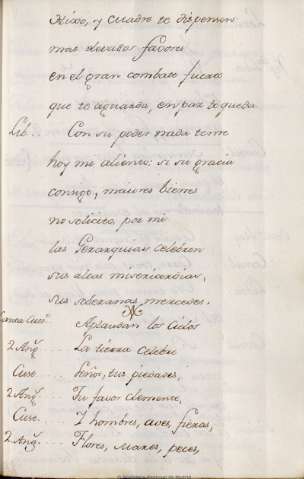 Hixo, y cuadro te dispensan
mas elevados favores
en el gran combate fuerte
que te aguarda, en paz te queda.
Lib... Con su poder nada teme
hoy mi aliento: si su gracia
consigo, maiores bienes
no solicito, por mi
las Gerarquias celebren
sus altas misericordias,
sus soberanas mercedes.
Aplaudan los Cielos
2 Ang.... La tierra celebre
Cuse.... Señor, tus piedades,
2 Ang.... Tu favor clemente,
Cuse.... Y hombres, aves, fieras,
2 Ang.... Flores, Mares, peces,